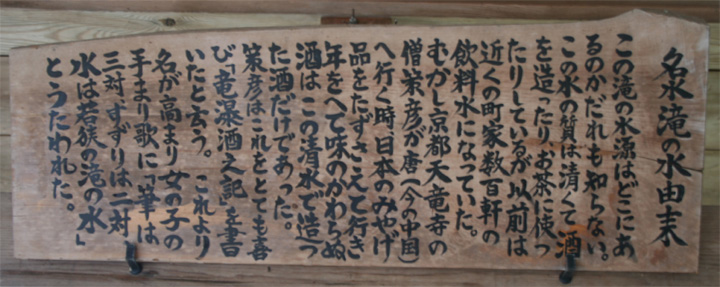 名水滝の水由来
この滝の水源はどこにあ
るのかだれも知らない。
この水の質は清くて酒
を造ったり、お茶に使っ
たりしているが以前は
近くの町家数百軒の
飲料水になっていた。
むかし京都天竜寺の
僧策彦が唐(今の中国)
へ行く時日本のみやげ
品をたずさえて行き
年をへて味のかわらぬ
酒はこの清水で造っ
た酒だけであった。
策彦はこれをとても喜
び「竜瀑酒之記」を書
いたと言う。これより
名が高まり女の子の
手まり歌に「筆は
三対、すずりは二対、
水は若狭の滝の水」
とうたわれた。